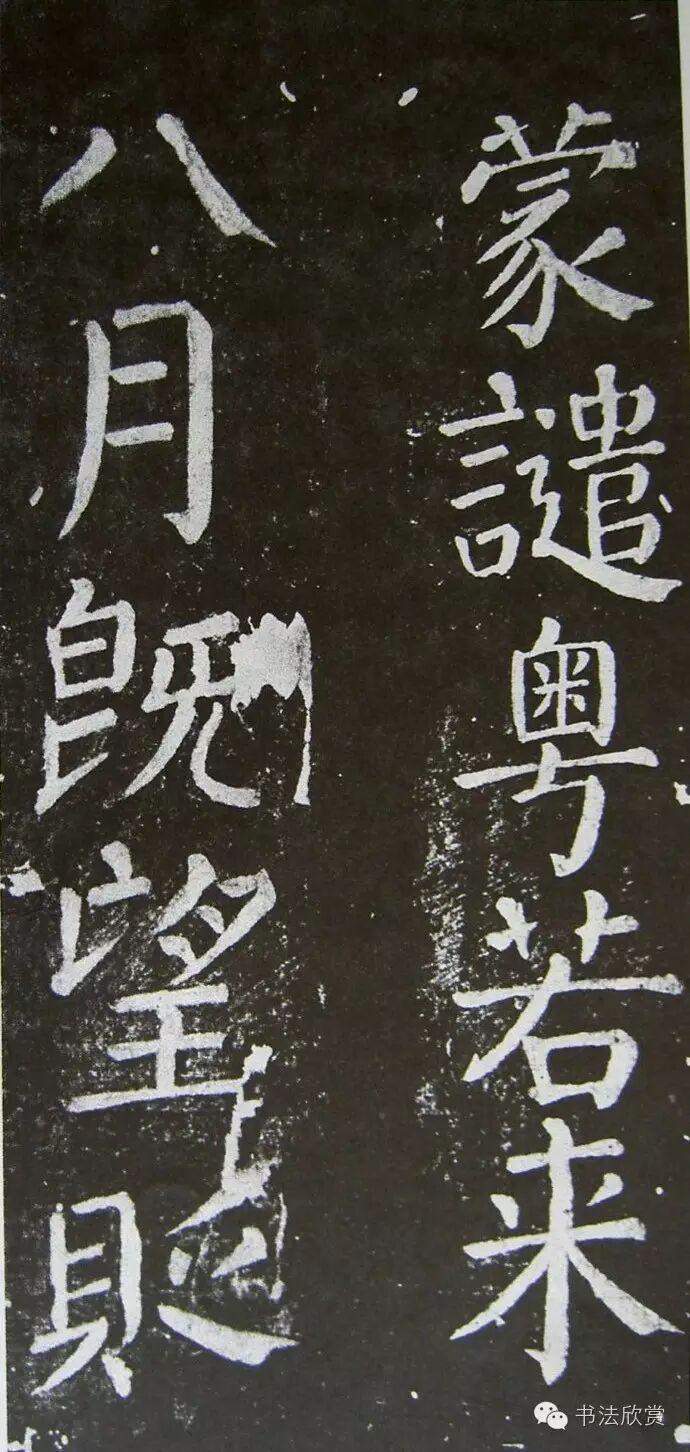 蒙譴粤若来
八月既望貶
书法欣赏